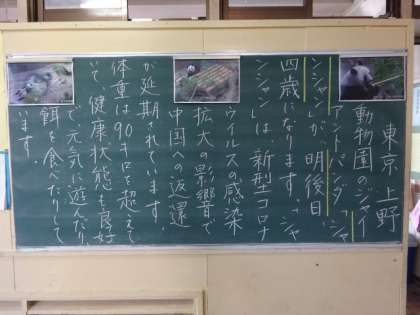 東京上野
動物園のジャイ
アントパンダ「シャ
ンシャン」が、明後日
四歳になります。「シャ
ンシャン」は、新型コロナ
ウイルスの感染
拡大の影響で
中国への返還
が延期されています。
体重は90キロを超えて
いて、健康状態も良好
で、元気に遊んだり、
餌を食べたりして
います。